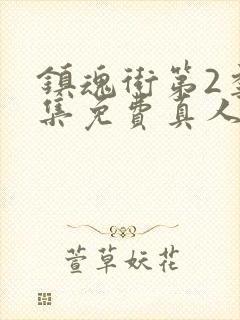 鎮魂街第2
集免費真人
萱草妖花